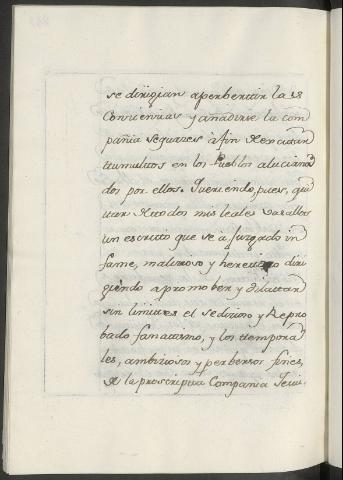 se dirigian a perbertir las
Conciencias y añadirse la com
pañia sequazes à fin de excitar
tumultos en los Pueblos alucina
dos por ellos. Queriendo, pues, qui
tar de todos mis leales vasallos
un escrito que se à Juzgado in
fame, malizioso y heretico diri
giendo a promober y dilattar
sin limites el sedizioso y Repro
bado fanatismo, y los ttempora
les, ambiziosos y perbersos fines
de la proscripta Compañia Jesui.